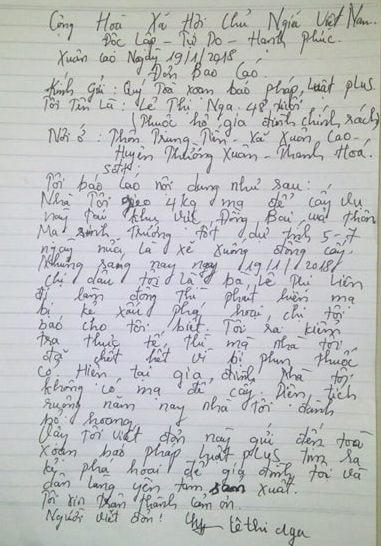 Cộng Hoà Xã Hội Chủ Ngiã Việt Nam.
Độc Lập - Tự Do - Hạnh phúc.
Xuân cao Ngày 19/1/2018
Đơn Báo Cáo
Kính gửi: Quý Toà xoan báo pháp luật plus.
Tôi Tên là: Lê Thị Nga 48 tuổi
(Thuộc hộ gia đình chính sách)
Nơi ở: Thôn Trung Tiến - Xã Xuân Cao -
Huyện Thường Xuân - Thanh Hoá.
Tôi báo cáo nội dung như sau:
Nhà Tôi gieo 4 kg mạ để cấy vụ
này tại khu vực Đồng Bai
Mạ sinh Trưởng tốt dự tính 5-7
ngày nữa là sẽ xuống đồng cấy.
Nhưng sang nay ngày 19/1/2018
chị dâu tôi là bà, Lê Thị Liên
đi làm đồng thì phát hiện mạ
bị kẻ xấu phá hoại, chị tôi
báo cho tôi biết. Tôi ra kiểm
tra thực tế, thì mạ nhà tôi
đã chết hết vì bị phun thuốc
cỏ. Hiện tại gia đình nhà tôi
không có mạ để cấy. Diện tích
ruộng năm nay nhà tôi đành
bỏ hoang.
Vậy Tôi viết đơn này gửi đến toà
xoan báo pháp luật plus tìm ra
kẻ phá hoại để gia đình tôi và
dân làng yên tâm sản xuất.
Tôi xin trân thành cảm ơn.
Người viết đơn! Lê thi nga